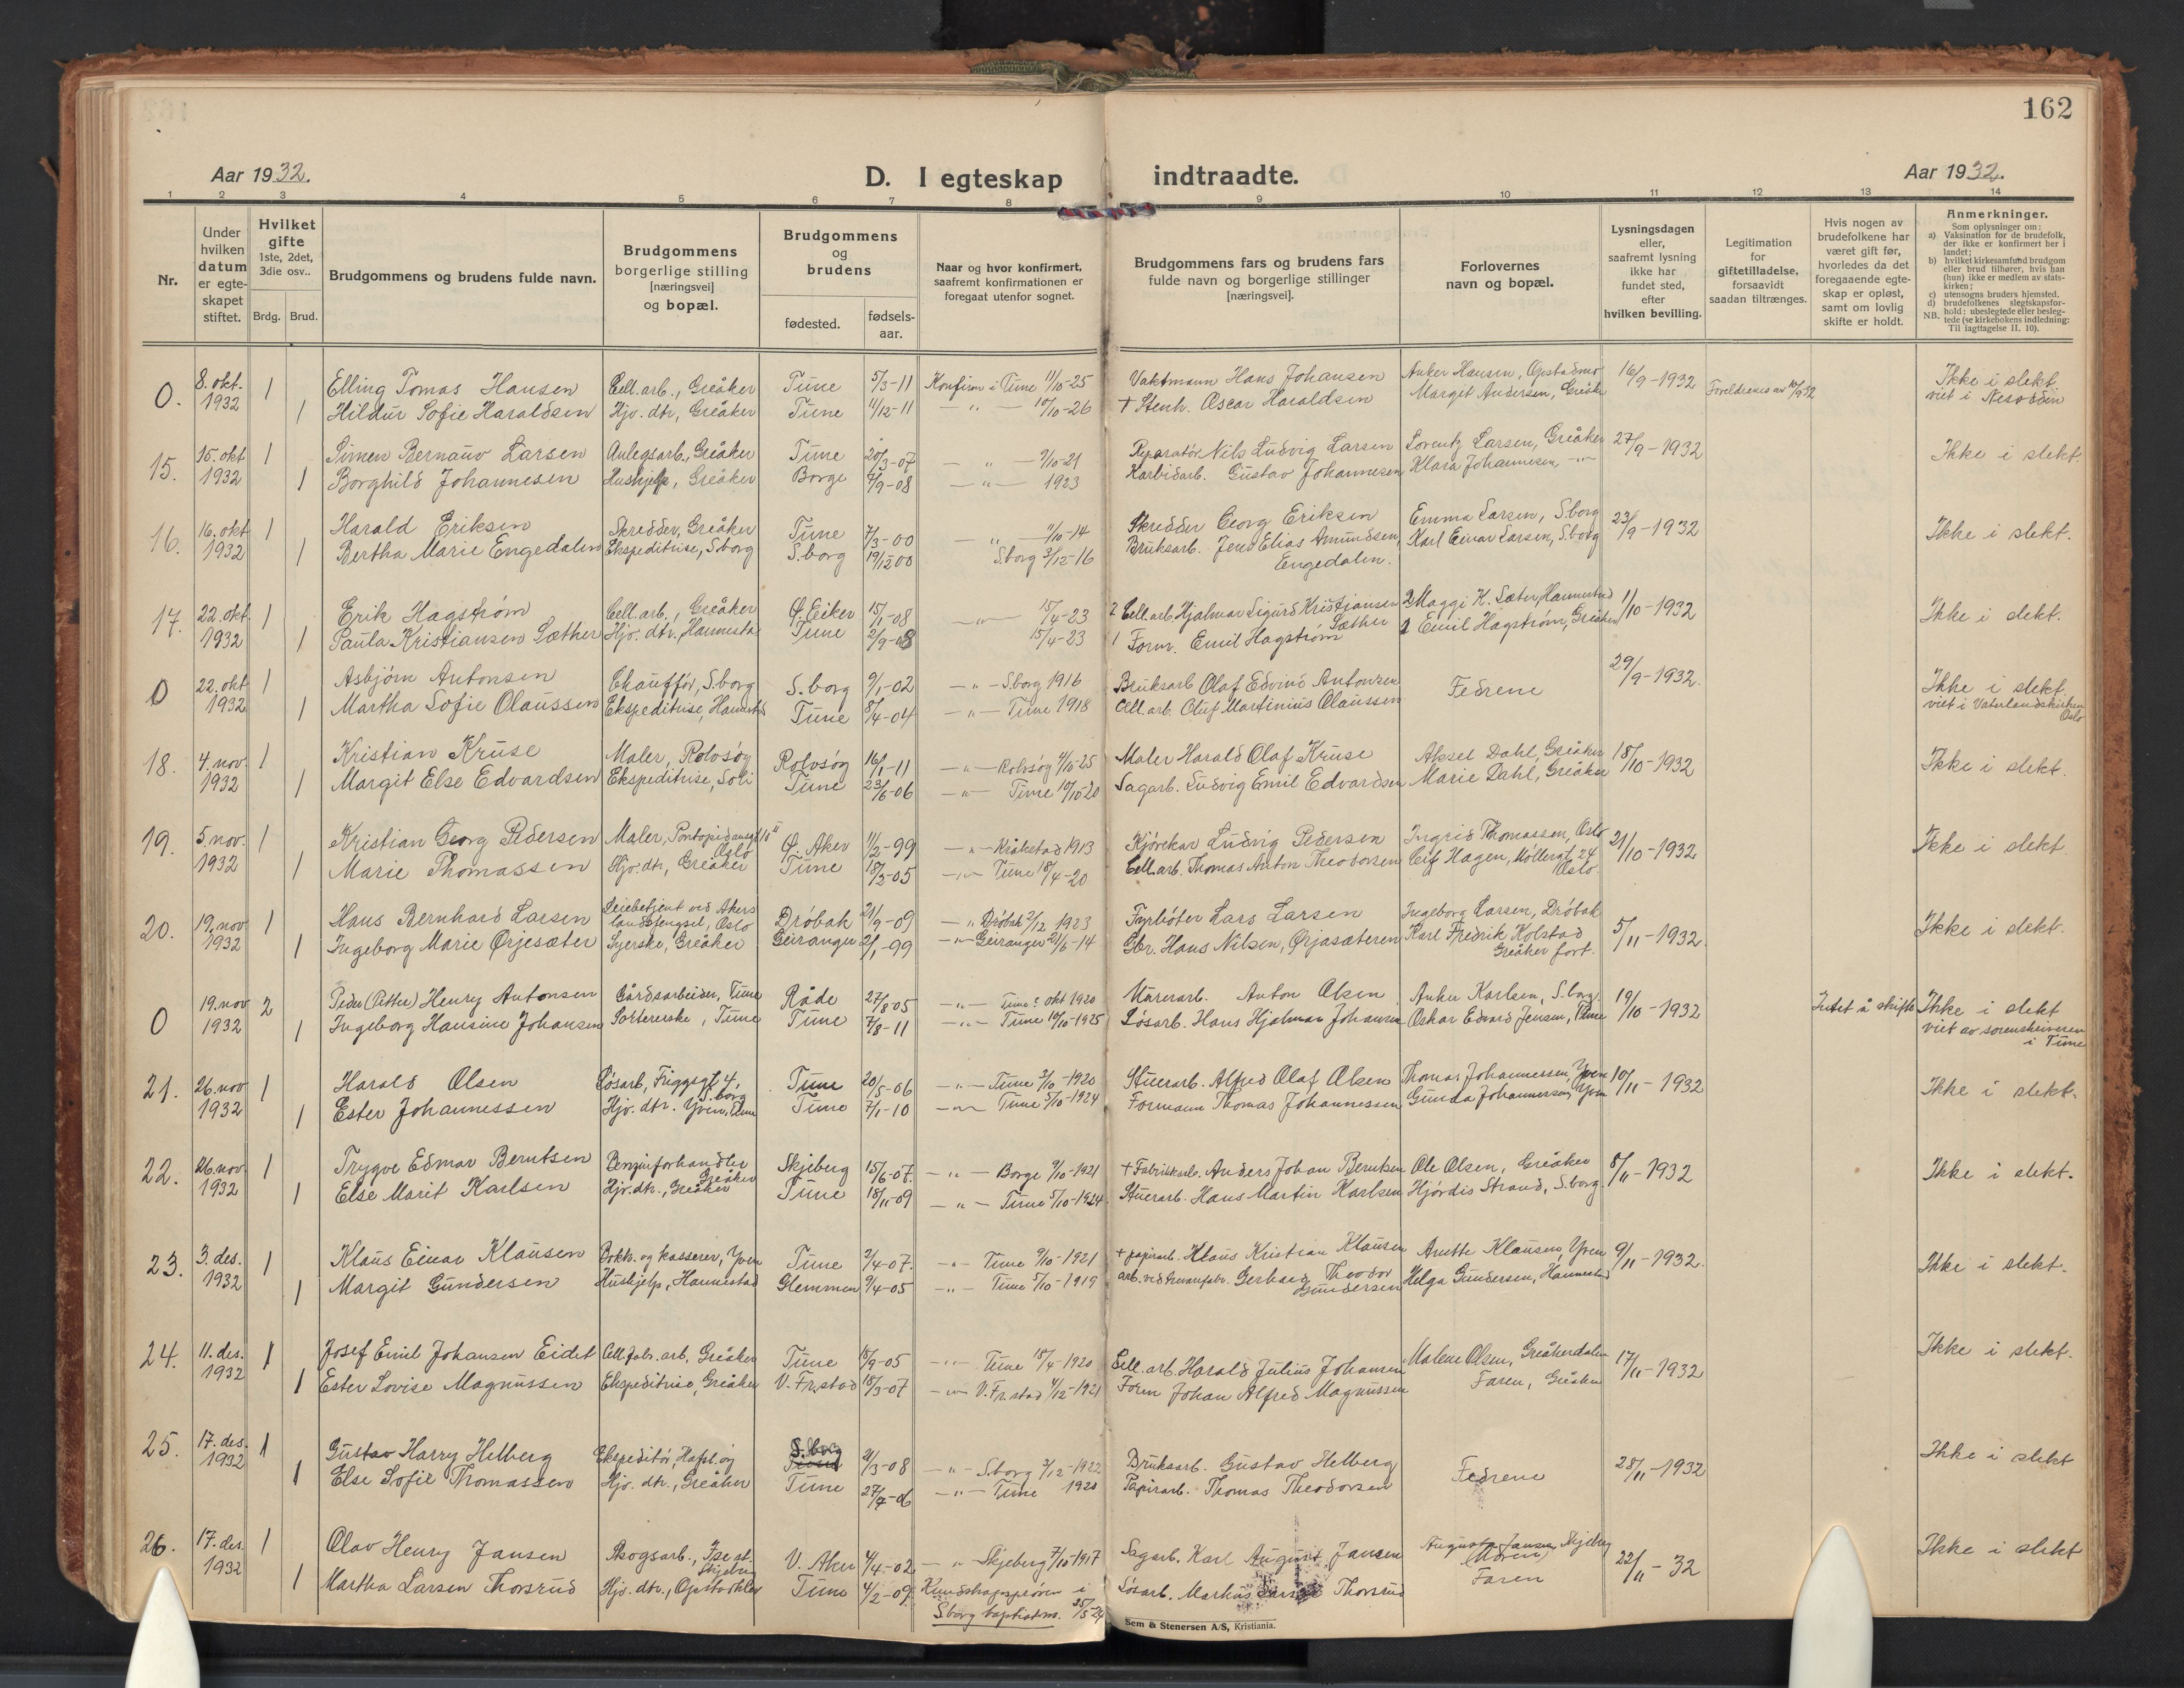 162
Aar 1932.
D. I egteskap indtraadte.
Aar 1932.
1 2 3 4 5 6 7 8 9 10 11 12 13 14
Nr.
Under hvilken datum er egteskapet stiftet.
Hvilket gifte 1ste, 2det, 3die osv..
Brdg. Brud.
Brudgommens og brudens fulde navn.
Brudgommens borgerlige stilling [næringsvei] og bopæl.
Brudgommens og brudens
fødested. fødsels-aar.
Naar og hvor konfirmert, saafremt konfirmationen er foregaat utenfor sognet.
Brudgommens fars og brudens fars fulde navn og borgerlige stillinger [næringsvei].
Forlovernes navn og bopæl.
Lysningsdagen eller, saafremt lysning ikke har fundet sted, efter hvilken bevilling.
Legitimation for giftetilladelse, forsaavidt saadan tiltrænges.
Hvis nogen av brudefolkene har været gift før, hvorledes da det foregaaende egteskap er opløst, samt om lovlig skifte er holdt.
Anmerkninger.
Som oplysninger om:
a) Vaksination for de brudefolk, der ikke er konfirmert her i landet;
b) hvilket kirkesamfund brudgom eller brud tilhører, hvis han (hun) ikke er medlem av statskirken;
c) utensogns bruders hjemsted.
d) brudefolkenes slegtskapsforhold: ubeslegtede eller beslegtede (se kirkebokens indledning:
NB. Til iagttagelse II. 10).
0. 8. okt. 1 Elling Tomas Hansen Cell. arb., Greåker Tune 5/3-11 Konfirm. i Tune 11/10-25 Vaktmann Hans Johansen Anker Hansen, 16/9-1932 Ikke i slekt.
1932 1 Hildur Sofie Haraldsen Hjv. dtr, Greåker Tune 11/12-11 — " — 10/10-26 + Stenh. Oscar Haraldsen Margit Andersen, Greåk viet i Nesodden
15. 15. okt 1 Simen Bernauv Larsen Anlegsarb., Greåker Tune 20/3-07 — " — 9/10-21 Reparatør Nils Ludvig Larsen Lorentz Larsen, Greåker 27/9-1932 Ikke i slekt.
1932 1 Borghild Johannesen Hushjelp, Greåker Borge 4/9-08 — " — 1923 Karbidarb. Gustav Johannesen Klara Johannesen, — " —
16. 16. okt 1 Harald Eriksen Skredder, Greåker Tune 7/3-00 — " — 11/10-14 Skredder Georg Eriksen Emma Larsen, S.borg 23/9-1932 Ikke i slekt.
1932 1 Bertha Marie Engedalen Ekspeditrise, S.borg S.borg 19/12-00 S.borg 3/12-16 Bruksarb. Jens Elias Amundsen, Karl Einar Larsen, S.borg
Engedalen.
17. 22. okt 1 Erik Hagstrøm Cell. arb., Greåker Ø. Eiker 15/1-08 — " — 15/4-23 2 Cell. arb. Hjalmar Sigurd Kristiansen 2 Maggi K. Sæter, Hannestad 11/10-1932 Ikke i slekt.
Sæther
1932 1 Paula Kristiansen Sæther Hjv. dtr, Hannestad Tune 2/9-08 15/4-23 1 Form. Emil Hagstrøm 1 Emil Hagstrøm, Greåker
0 22. okt 1 Asbjørn Antonsen Chauffør, S.borg S.borg 9/1-02 — " — S.borg 1916 Bruksarb Olaf Edvind Antonsen Fedrene 29/9-1932. Ikke i slekt.
1932 1 Martha Sofie Olaussen Ekspeditrise, Hannestad Tune 8/4-04 — " — Tune 1918 Cell. arb. Oluf Martinius Olaussen viet i Vaterlandskirken
Oslo
18. 4. nov. 1 Kristian Kruse Maler, Rolvsøy Rolvsøy 16/1-11 — " — Rolvsøy 4/10-25 Maler Harald Olaf Kruse Aksel Dahl, Greåker 18/10-1932 Ikke i slekt.
1932 1 Margit Else Edvardsen Ekspeditrise, Soli Tune 23/6-06 — " — Tune 10/10-20 Sagarb. Ludvig Emil Edvardsen Marie Dahl, Greåker
19. 5. nov. 1 Kristian Georg Pedersen Maler, Oslo Ø. Aker 11/2-99 — " — Kråkstad 1913 Kjørekar Ludvig Pedersen Ingrid Thomassen, Oslo 21/10-1932 Ikke i slekt.
1932 1 Marie Thomassen Hjv. dtr, Greåker Tune 18/3-05 — " — Tune 18/4-20 Cell. arb. Thomas Anton Theodorsen Leif Hagen, Møllergt 24
Oslo.
20. 19. nov 1 Hans Bernhard Larsen Leiebetjent ved Akers landsfengsel, Oslo Drøbak 21/9-09 — " Drøbak 2/12 1923 Fyrbøter Lars Larsen Ingeborg Larsen, Drøbak 5/11-1932. Ikke i slekt.
1932 1 Ingeborg Marie Ørjesæter Syerske, Greåker Geiranger 2/1-99 — " — Geiranger 21/6-14 Gbr. Hans Nilsen, Ørjasæteren Karl Fredrik Kolstad
Greåker fort.
0 19. nov 2 Peder (Petter) Henry Antonsen Gårdsarbeider, Tune Råde 27/8 05 — " — Tune ? okt 1920 Murerarb. Anton Olsen Anker Karlsen, S.borg. 19/10-1932 Intet å skifte Ikke i slekt
1932 1 Ingeborg Hansine Johansen Sortererske, Tune Tune 7/8-11 — " — Tune 10/10-1925 Løsarb. Hans Hjalmar Johansen Oskar Edvard Jensen, Tune viet av sorenskriveren
i Tune
21. 26. nov 1 Harald Olsen Løsarb, Friggsgt. 4, S.borg Tune 20/5-06 — " — Tune 3/10-1920 Stuerarb. Alfred Olaf Olsen Thomas Johannessen, Yven 10/11-1932 Ikke i slekt.
1932 1 Ester Johannessen Hjv. dtr. Yven, Tune Tune 7/1-10 — " — Tune 5/10-1924 Formann Thomas Johannessen Gunda Johannessen, Yven
22. 26. nov. 1 Trygve Edmar Berntsen Benzinforhandler Greåker Skjeberg 15/6-07. — " — Borge 9/10-1921 + Fabrikkarb. Anders Johan Berntsen Ole Olsen, Greåker 8/11-1932 Ikke i slekt.
1932 1 Else Marit Karlsen Hjv. dtr., Greåker Tune 18/11-09 — " — Tune 5/10-1924. Stuerarb. Hans Martin Karlsen Hjørdis Strand, S.borg.
23. 3. des. 1 Klaus Einar Klausen Bokh. og kasserer, Yven Tune 2/4-07. — " — Tune 9/10-1921 + papirarb. Klaus Kristian Klausen Anette Klausen, Yven 9/11-1932. Ikke i slekt.
1932 1 Margit Gundersen Hushjelp, Hannestad Glemmen 9/4-05 — " — Tune 5/10-1919 Gerhard Theodor Gundersen Helga Gundersen, Hannestad
24. 11. des. 1 Josef Emil Johansen Eidet Cell. fabr. arb, Greåker Tune 15/9-05 — " — Tune 18/4-1920 Cell. arb. Harald Julius Johansen Malene Olsen, Greåkerdalen 17/11-1932 Ikke i slekt.
1932 1 Ester Lovise Magnussen Ekspeditrise, Greåker V. Fr.stad 18/3-07 — " — V. Fr.stad 4/12-1921 Form Johan Alfred Magnussen Faren, Greåker
25. 17. des. 1 Gustav Harry Helberg Ekspeditør, Hafsl.øy S.borg 21/3-08 — " — S.borg 3/12-1922 Bruksarb. Gustav Helberg Fedrene 28/11-1932 Ikke i slekt
1932 1 Else Sofie Thomassen Hjv. dtr., Greåker Tune 27/7-06 — " — Tune 1920 Papirarb. Thomas Theodorsen
26. 17. des. 1 Olav Henry Jansen Skogsarb., Ise st. Skjeberg V. Aker 4/4-02 — " Skjeberg 7/10-1917 Sagarb. Karl August Jansen Augusta Jansen, Skjeberg (Moren) 22/11-32 Ikke i slekt
1932 1 Martha Larsen Thorsrud Hjv. dtr., Tune 4/2-09. Kundskapsprøven i Løsarb. Markus Larsen Thorsrud Faren
S.borg baptistm. 25/5-24
Sem & Stenersen A/S, Kristiania.